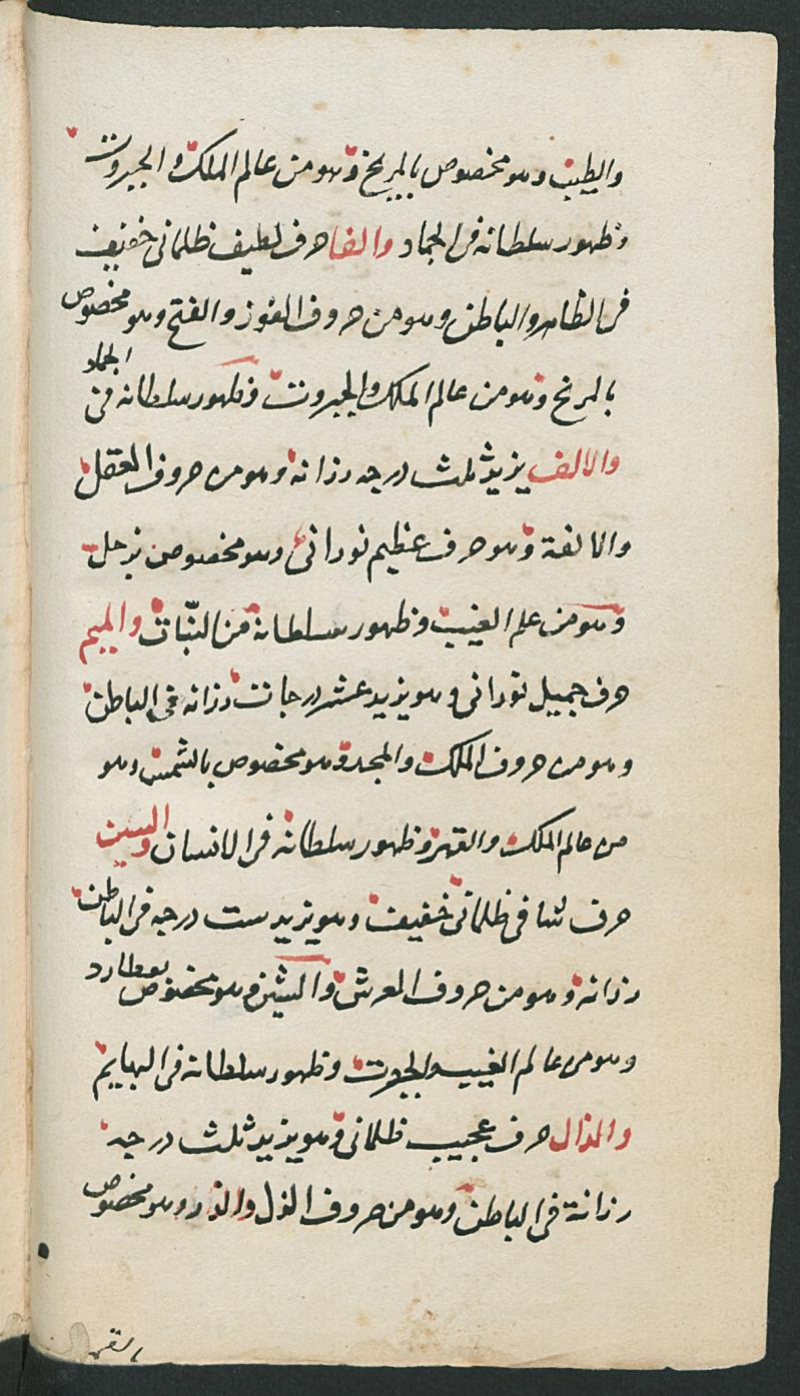 والطيب وهو مخصوص بالمريخ وهو من عالم الملك والجبروت
وظهور سلطانه فى الجماد والفا حرف لطيف ظلمانى خفيف
فى الظاهر والباطن وهو من حروف الفوز والفتح وهو مخصوص
بالمريخ وهو من عالم الملك والجبروت وظهور سلطانه فى الجماد
والالف يزيد ثلث درجه رزانه وهو من حروف العقل
والالفة وهو حرف عظيم نورانى وهو مخصوص بزحل
وهو من علم الغيب وظهور سلطانه من النبّات والميم
حرف جميل نورانى وهو يزيد عشر درجات رزانه فى الباطن
وهو من حروف الملك والمجد وهو مخصوص بالشمس وهو
من عالم الملك والقهر وظهور سلطانه فى الانسان والسين
حرف شافى ظلمانى خفيف وهو يزيد ست درجه فى الباطن
رزانه وهو من حروف العرش والشين وهو مخصوص بعطارد
وهو من عالم الغيب والجبروت وظهور سلطانه فى البهايم
والذال حرف عجيب ظلمانى وهو يزيد ثلث درجه
رزانة فى الباطن وهو من حروف الذل وهو مخصوص
بالقمر